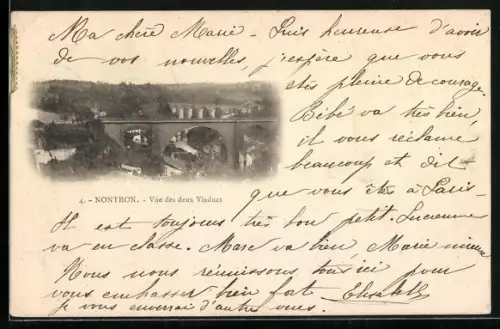 Ma chère Marie - Suis heureuse d'avoir
de vos nouvelles, j'espère que vous
êtes pleine de courage.
Bébé va très bien,
il vous réclame
beaucoup et dit
que vous êtes à Paris-
4. - NONTRON. - Vue des deux Viaducs
Il est toujours très bon petit. Suzanne
va en classe. Marc va bien, Marie mieux
Nous nous réunissons tous ici pour
vous embrasser bien fort - Elisabeth
Je vous enverrai d'autres vues.